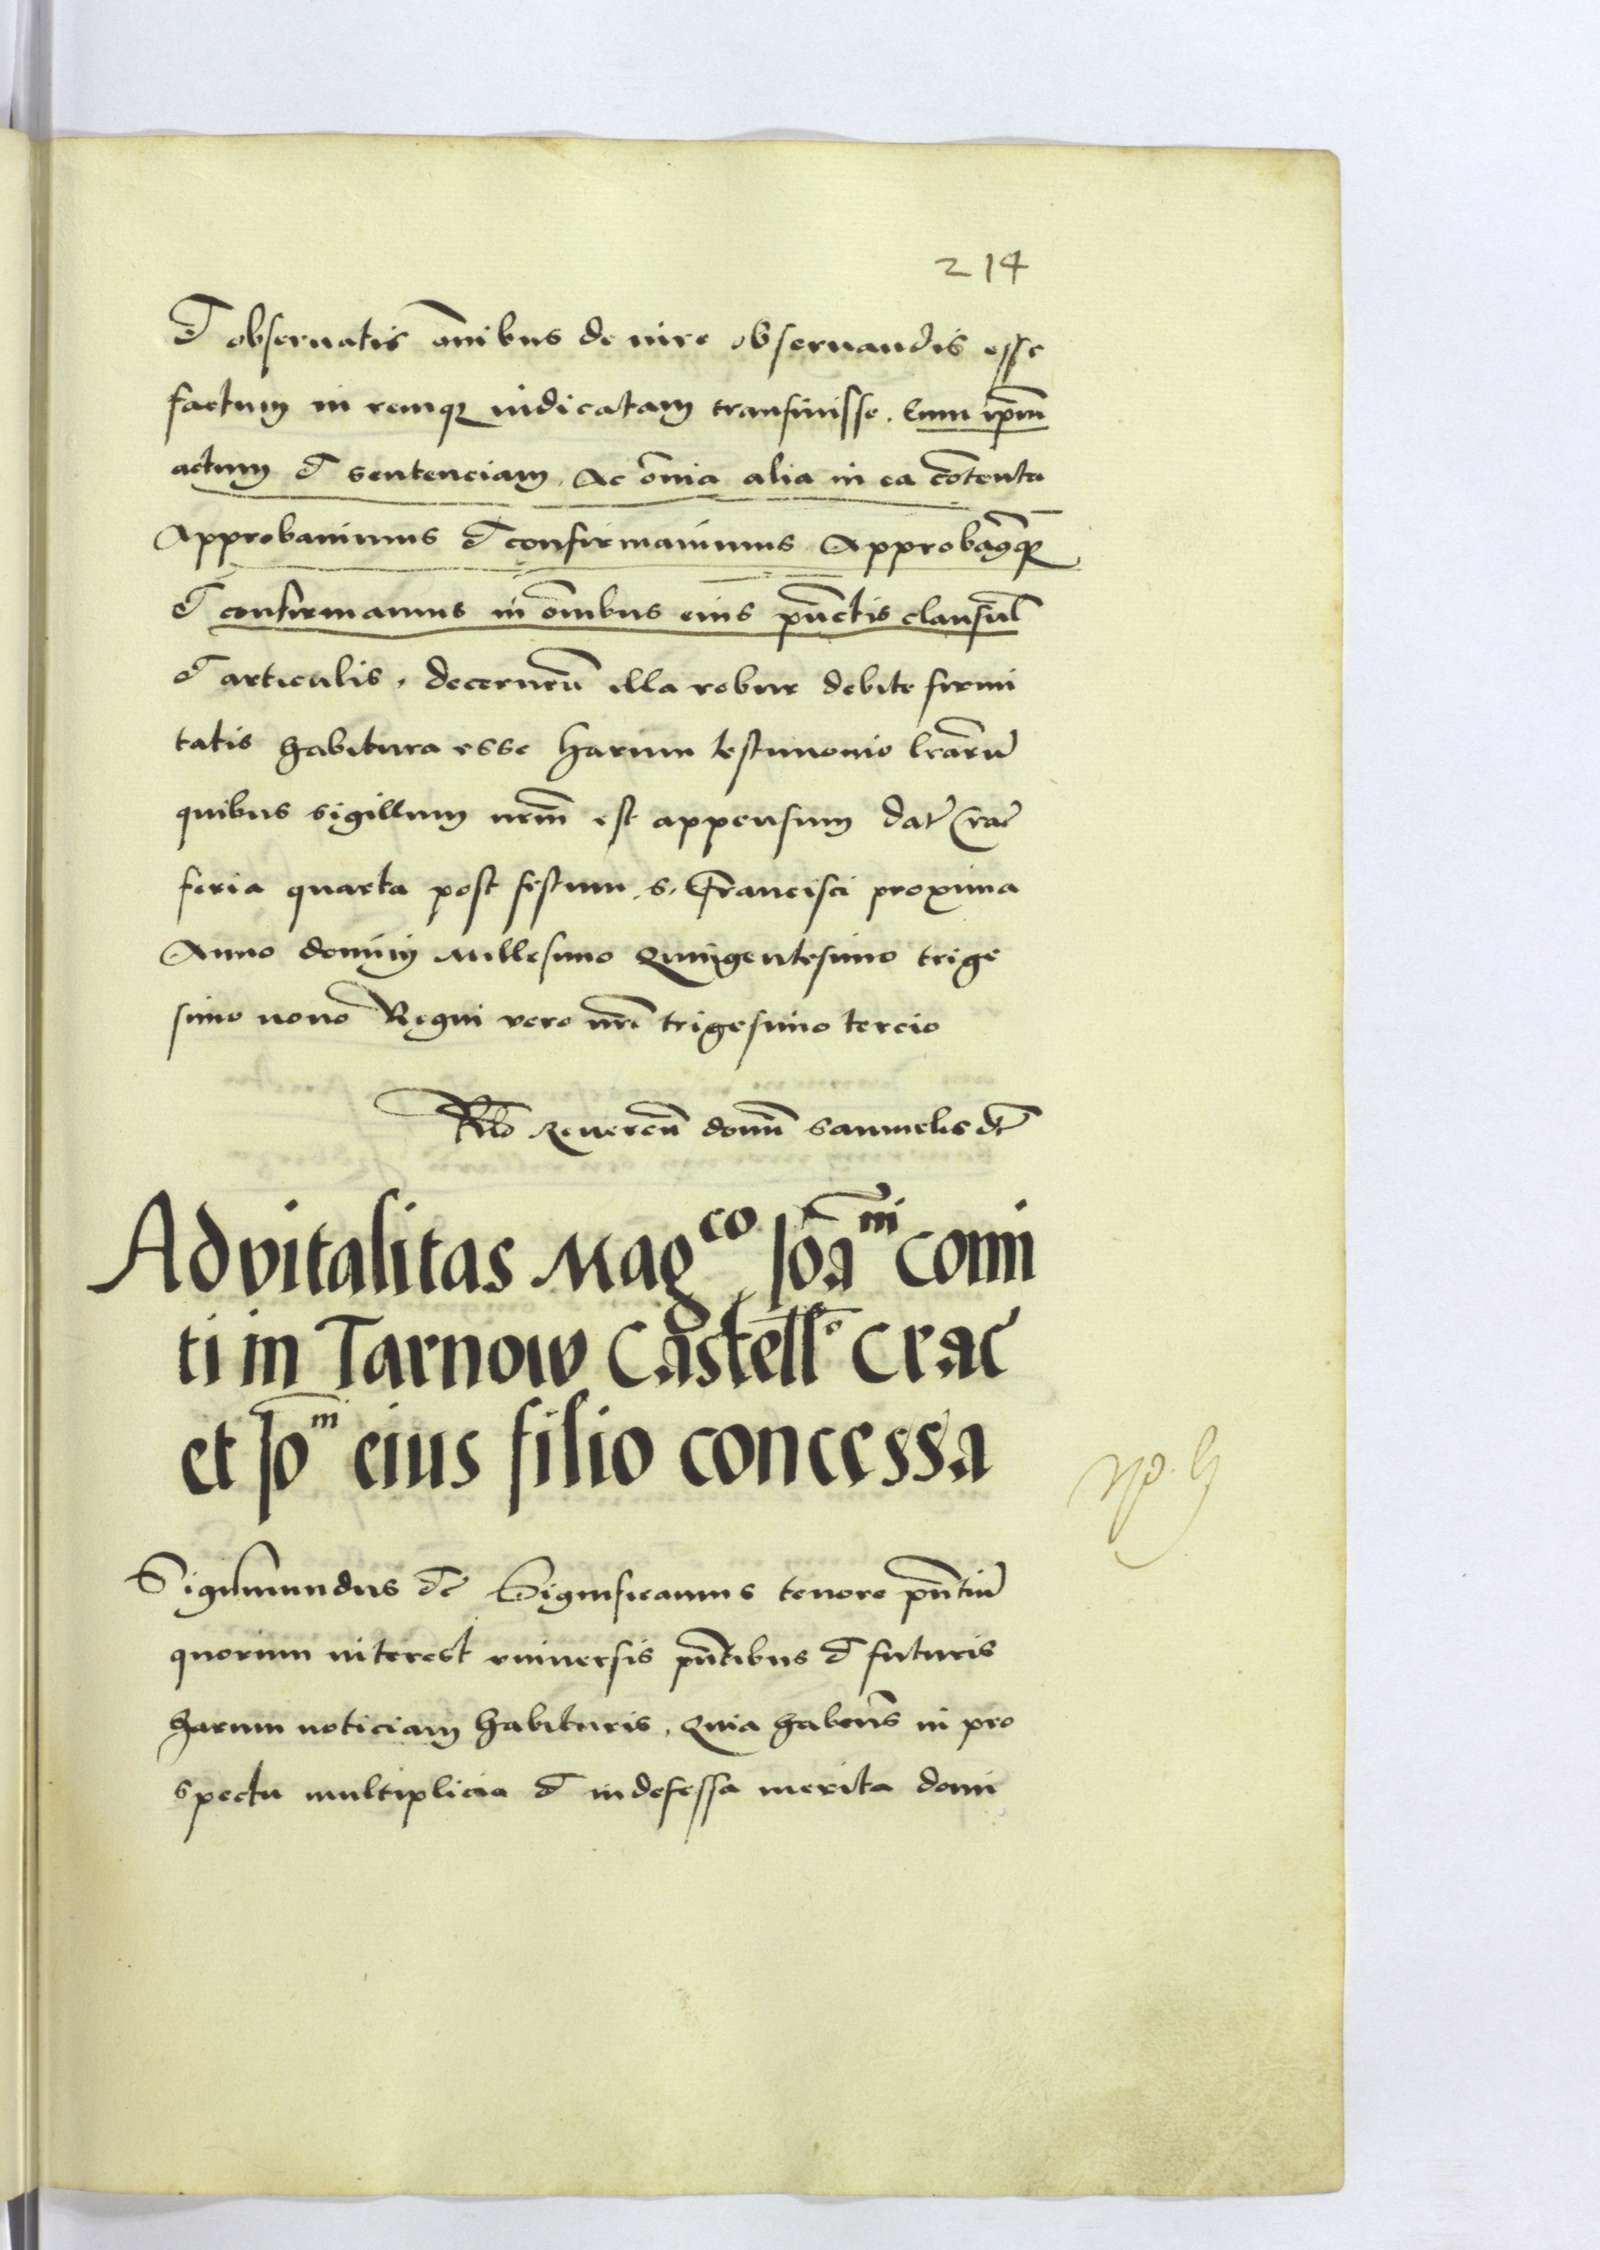 214
et obseruatis om̄ibus de iure obseruandis esse
factum in remq̨ iudicatam transiuisse. Eum ip̄m
actum et sentenciam, Ac om̄ia alia in ea cōtenta
Approbauimus et confirmauimus Approbam̄usq̨
et confirmamus in om̄ibus eius pūctis clausul̄
et articulis, decernen̄ illa robur debite firmi
tatis habitura esse Harum testimonio l̄rarū
quibus sigillum nr̄m est appensum dat̄ Crac̄
feria quarta post festum s. Francisci proxima
Anno dominj Millesimo Quingentesimo trige
simo nono Regni vero nr̄i trigesimo tercio
Rel̄o Reueren̄ domī samuelis etc̄
Advitalitas Magco Joāni comi
ti in Tarnow Castell̄o Crac̄
et Jom̄ eius filio concessa
Sigismundus etc̄ Significamus tenore pn̄tiū
quorum interest vniuersis pn̄tibus et futuris
harum noticiam habituris, Quia haben̄s in pro
spectu multiplicia et indefessa merita domi